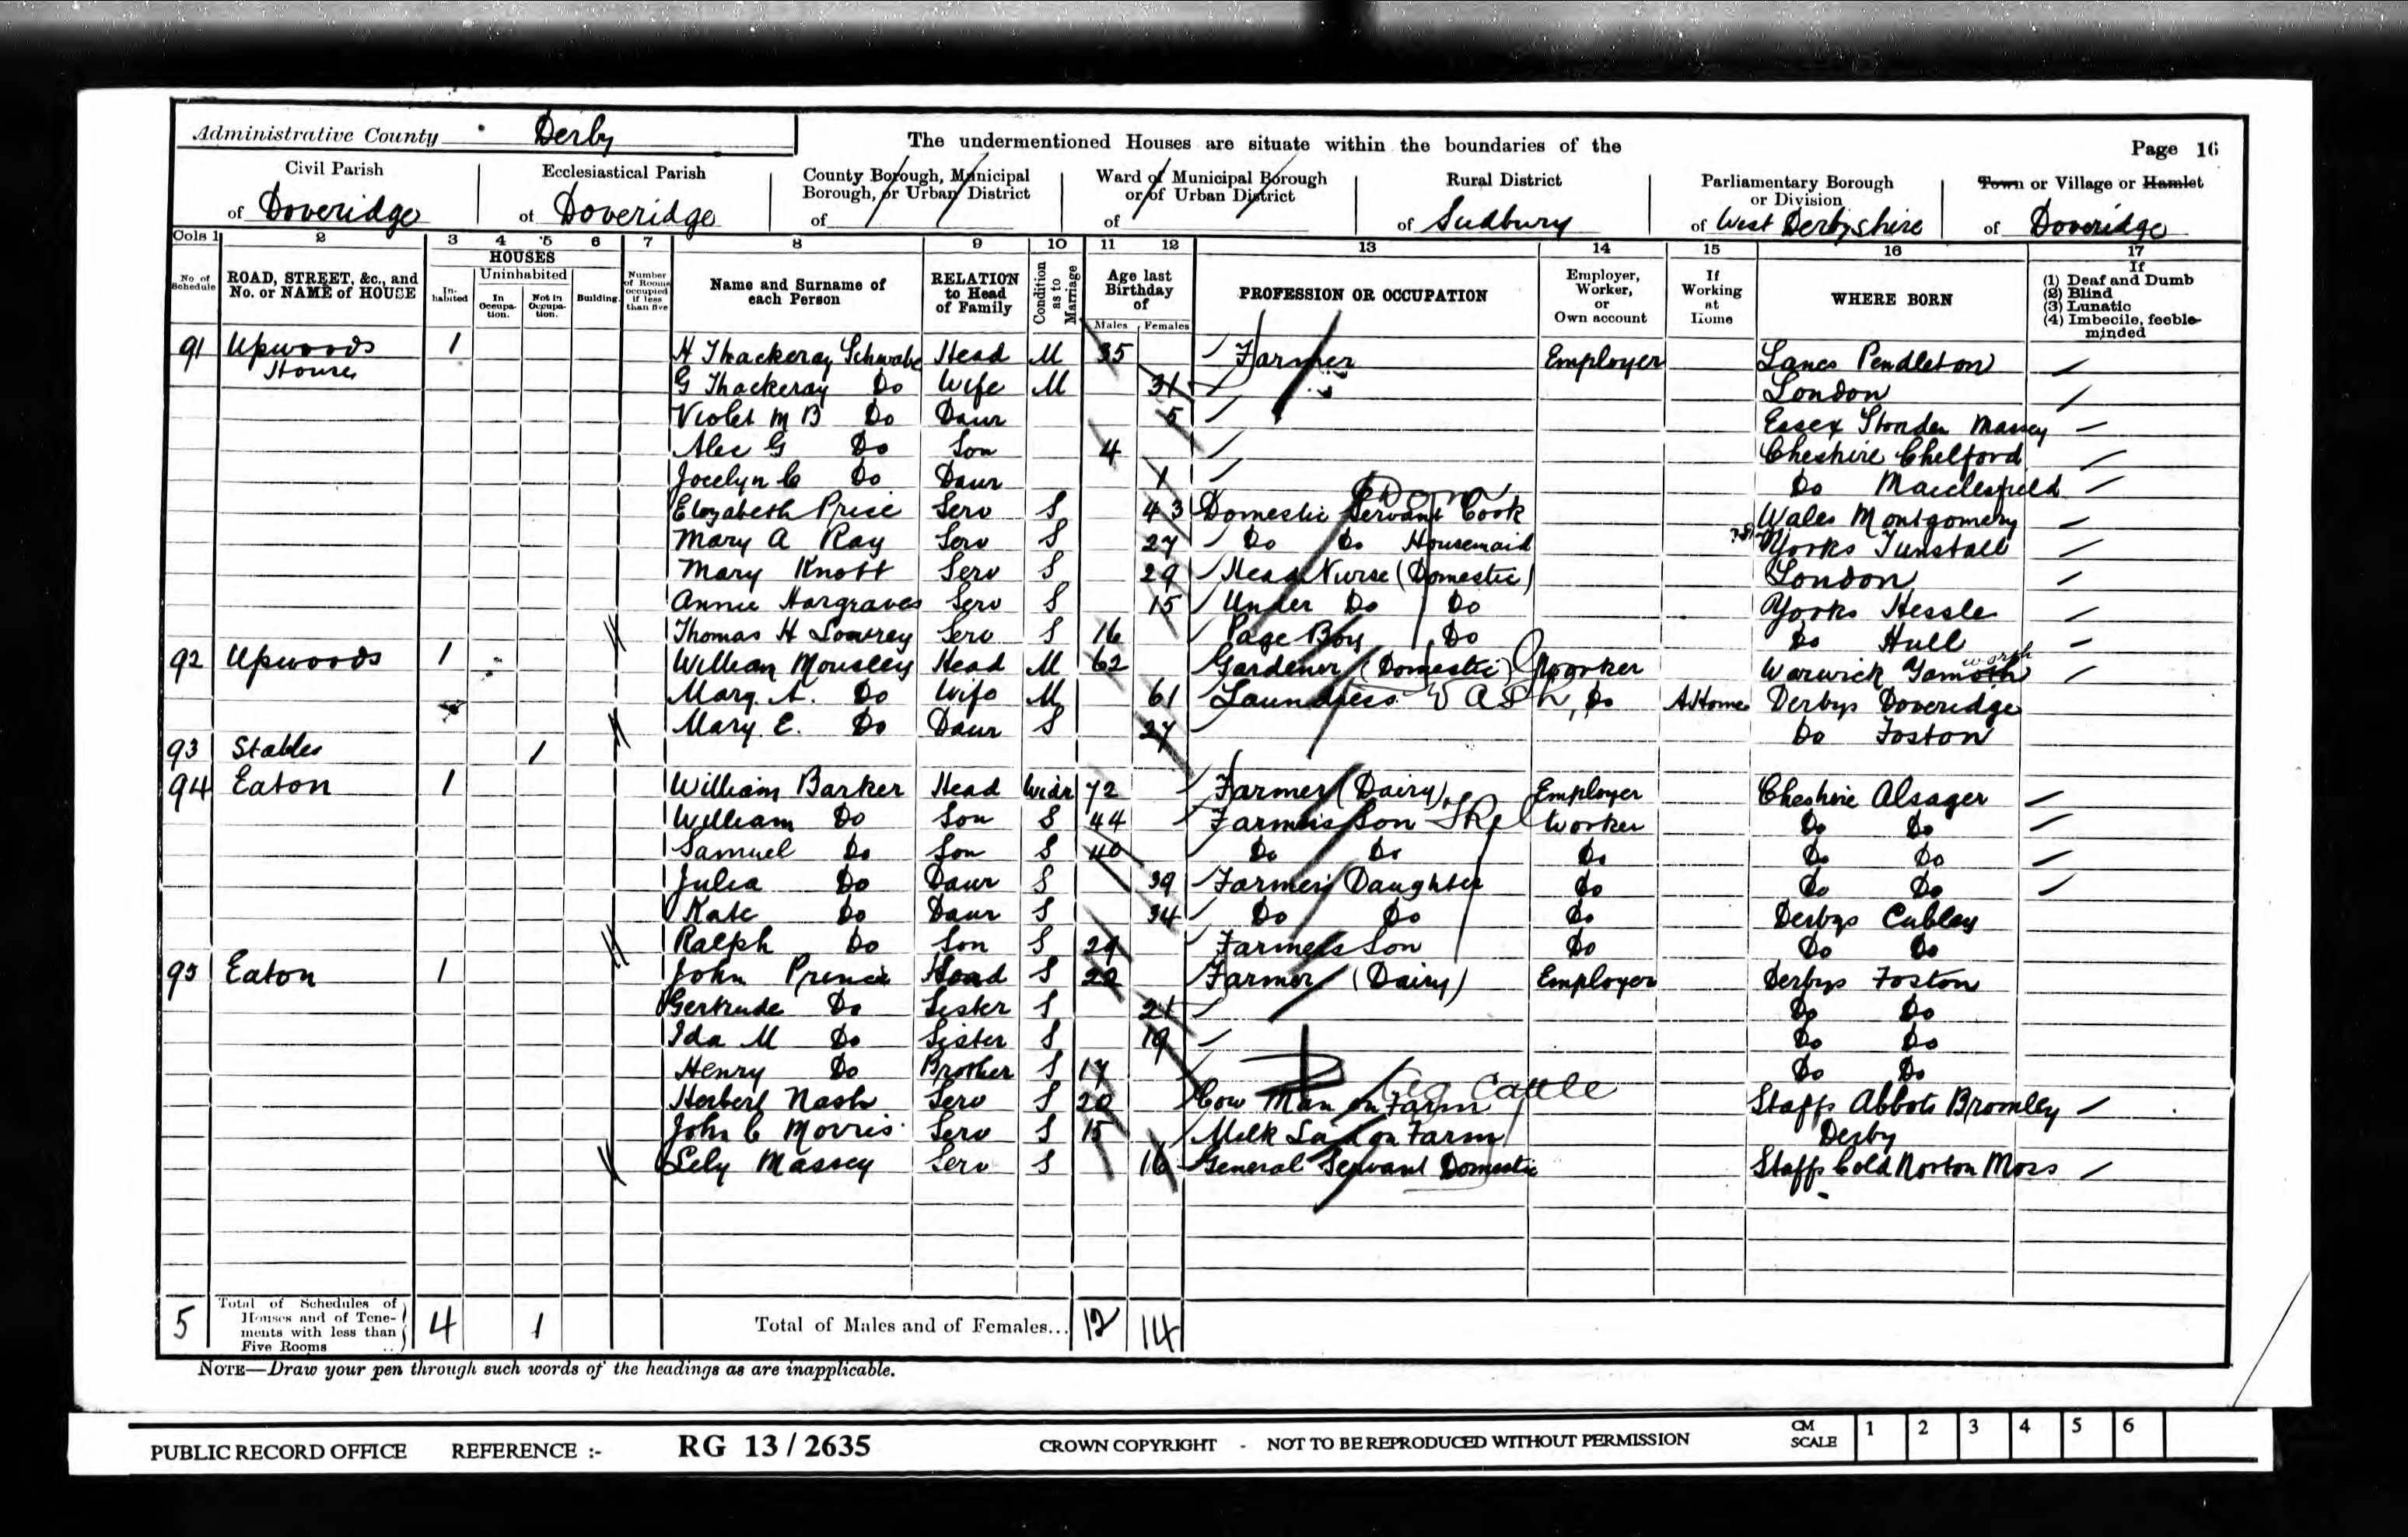 Administrative County Derby
The undermentioned Houses are situate within the boundaries of the
Page 16
Civil Parish of Doveridge
Ecclesiastical Parish of Doveridge
County Borough, Municipal Borough, or Urban District of
Ward of Municipal Borough or of Urban District of
Rural District of Sudbury
Parliamentary Borough or Division of West Derbyshire
Town or Village or Hamlet of Doveridge
Cols 1 2 3 4 5 6 7 8 9 10 11 12 13 14 15 16 17
No. of Schedule
ROAD, STREET, &c., and No. or NAME of HOUSE
HOUSES
Inhabited
Uninhabited
In Occupation.
Not in Occupation.
Building.
Number of Rooms occupied if less than five
Name and Surname of each Person
RELATION to Head of Family
Condition as to Marriage
Age last Birthday of
Males Females
PROFESSION OR OCCUPATION
Employer, Worker, or Own account
If Working at Home
WHERE BORN
If
(1) Deaf and Dumb
(2) Blind
(3) Lunatic
(4) Imbecile, feeble-minded
91 Upwoods House 1 H Thackeray Schwabe Head M 35 Farmer Employer Lancs Pendleton
G Thackeray Do Wife M 31 London
Violet M B Do Daur 5 Essex Stonden Massey
Alec G Do Son 4 Cheshire Chelford
Jocelyn C Do Daur 1 Do Macclesfield
Elizabeth Price Serv S 43 Domestic Servant Cook Wales Montgomery
Mary A Ray Serv S 27 Do Do Housemaid Yorks Tunstall
Mary Knott Serv S 29 Head Nurse (Domestic) London
Annie Hargraves Serv S 15 Under Do Do Yorks Hessle
Thomas H Lowrey Serv S 16 Page Boy Do Do Hull
92 Upwoods 1 William Mousley Head M 62 Gardener (Domestic) Worker Warwick Tamworth
Mary A. Do Wife M 61 Laundress Wash, Do At Home Derbys Doveridge
Mary E. Do Daur S 27 Do Foston
93 Stables 1
94 Eaton 1 William Barker Head Widr 72 Farmer (Dairy) Employer Cheshire Alsager
William Do Son S 44 Farmers Son Rel Worker Do Do
Samuel Do Son S 40 Do Do Do Do Do
Julia Do Daur S 39 Farmers Daughter Do Do Do
Kate Do Daur S 34 Do Do Do Derbys Cubley
Ralph Do Son S 29 Farmers Son Do Do Do
95 Eaton 1 John Prince Head S 22 Farmer (Dairy) Employer Derbys Foston
Gertrude Do Sister S 21 Do Do
Ida M Do Sister S 19 Do Do
Henry Do Brother S 17 Do Do
Herbert Nash Serv S 20 Cow Man on Farm Cattle Staffs Abbots Bromley
John C Morris Serv S 15 Milk Lad on Farm Derby
Lily Massey Serv S 16 General Servant Domestic Staffs Cold Norton Moss
5 Total of Schedules of Houses and of Tenements with less than Five Rooms 4 1 Total of Males and of Females... 12 14
NOTE—Draw your pen through such words of the headings as are inapplicable.
PUBLIC RECORD OFFICE REFERENCE :- RG 13 / 2635 CROWN COPYRIGHT - NOT TO BE REPRODUCED WITHOUT PERMISSION CM SCALE 1 2 3 4 5 6